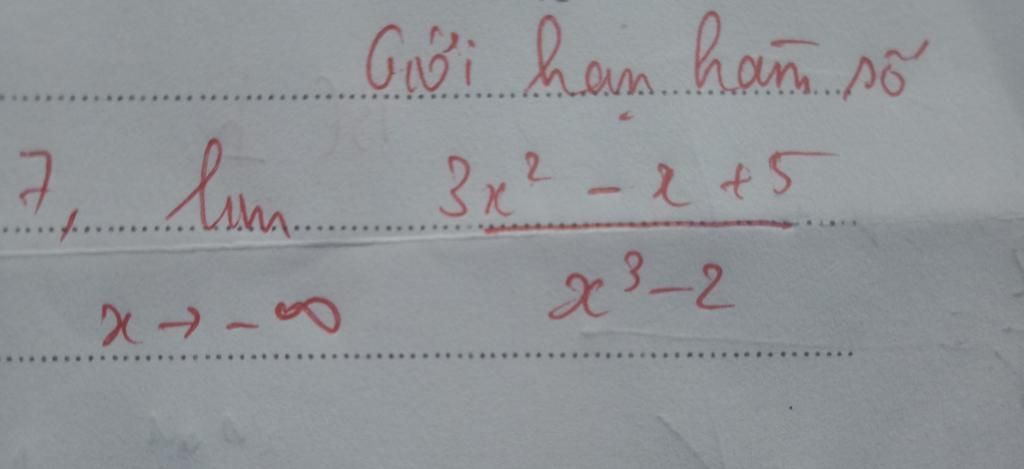 Giới hạn hàm số
7, lim 3x² - x + 5
x → - ∞ x³ - 2